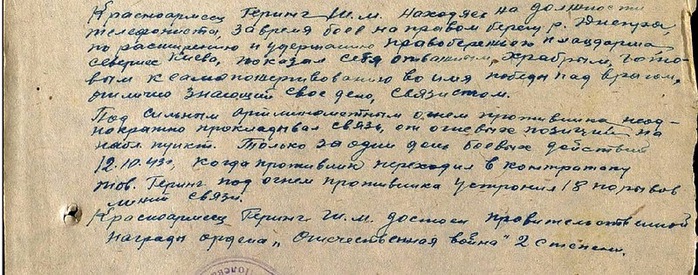 Красноармеец Геринг Ш.М. находясь на должности
телефониста, за время боев на правом берегу р. Днепра,
по расширению и удержанию правобережного плацдарма,
севернее Киева, показал себя отважным, храбрым, гото-
вым к самопожертвованию во имя победы над врагом,
отлично знающий свое дело, связистом.
Под сильным арт. минометным огнем противника неод-
нократно прокладывал связь, от огневых позиций на
набл. пункт. Только за один день боевых действий
12.10.43г, когда противник переходил в контратаку
тов. Геринг под огнем противника устронил 18 порывов
линии связи.
Красноармеец Геринг Ш.М. достоин правительственной
награды ордена „Отечественная война" 2 степени.